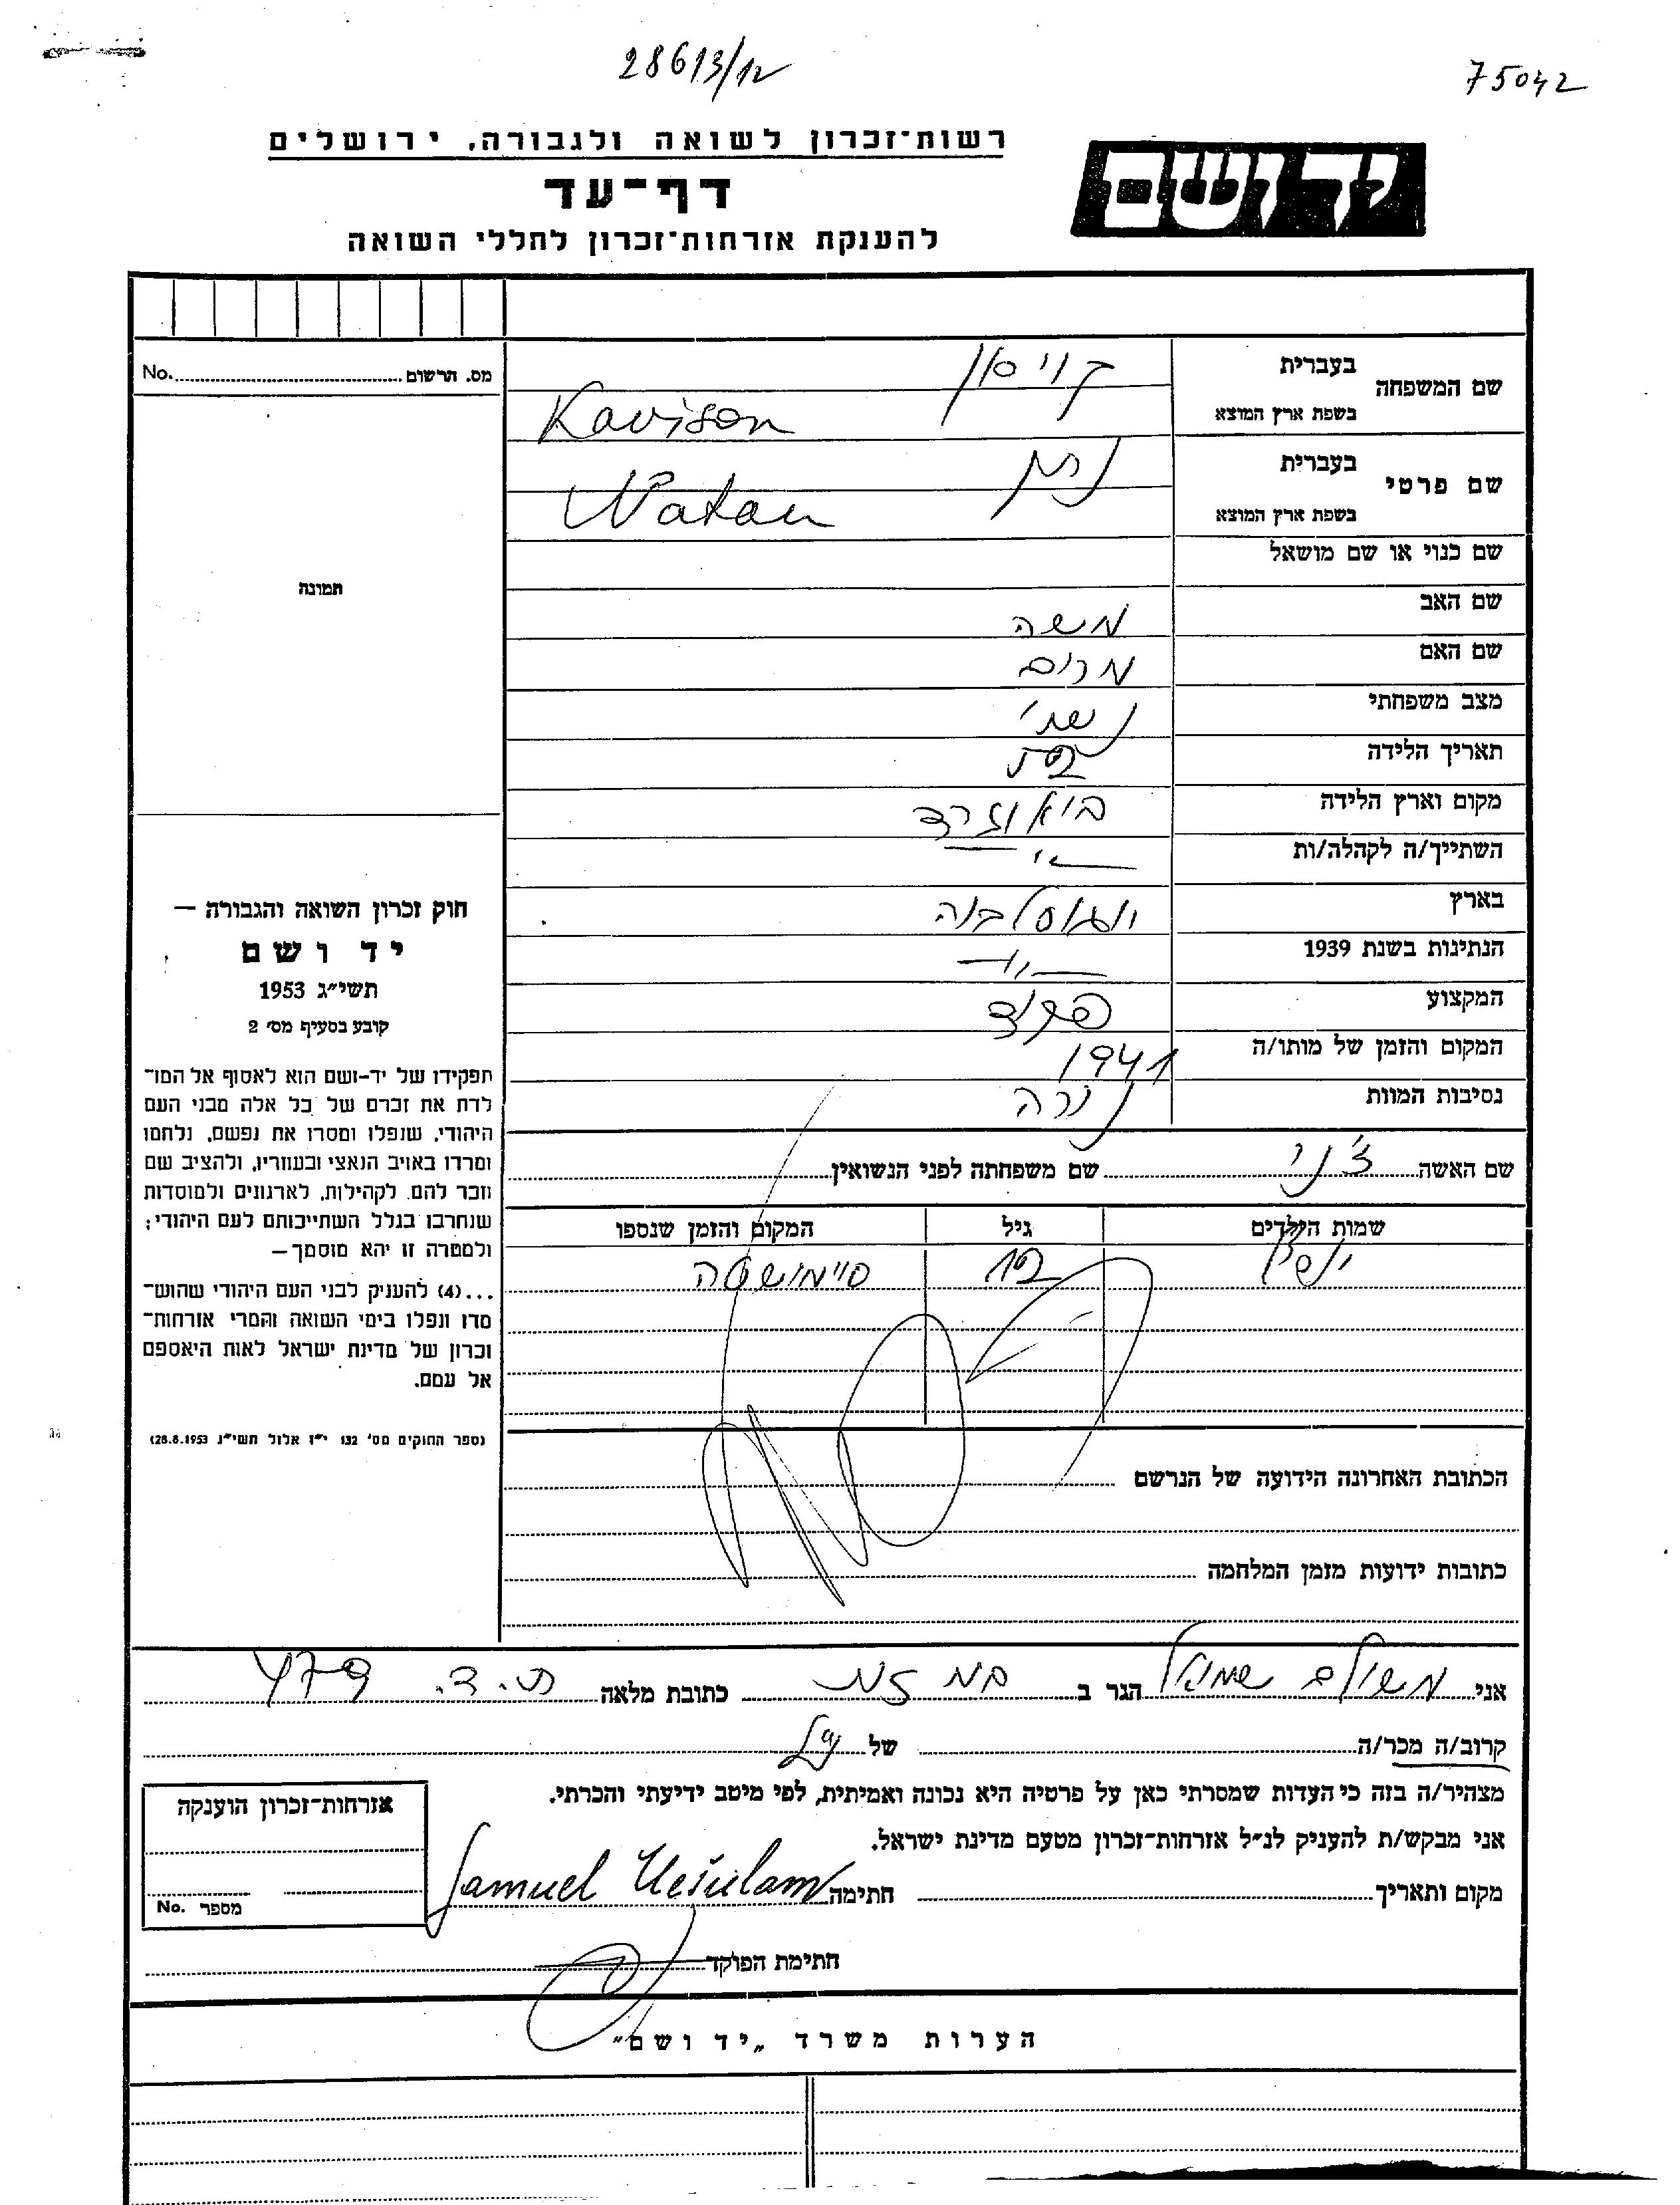 28613/12
75042
יד ושם
רשות־זכרון לשואה ולגבורה, ירושלים
דף־עד
להענקת אזרחות־זכרון לחללי השואה
מס. תרשום No.
תמונה
שם המשפחה
בעברית קויסון
בשפת ארץ המוצא Kavison
שם פרטי
בעברית נתן
בשפת ארץ המוצא Natan
שם כנוי או שם מושאל
שם האב משה
שם האם מרים
מצב משפחתי נשוי
תאריך הלידה
מקום וארץ הלידה
השתייך/ה לקהלה/ות
בארץ יוגוסלביה
הנתינות בשנת 1939 —״—
המקצוע פקיד
המקום והזמן של מותו/ה 1941
נסיבות המוות נורה
שם האשה ז׳ני שם משפחתה לפני הנשואין
שמות הילדים גיל המקום והזמן שנספו
יוסף 12
הכתובת האחרונה הידועה של הנרשם
כתובות ידועות מזמן המלחמה
חוק זכרון השואה והגבורה —
יד ושם
תשי״ג 1953
קובע בסעיף מס׳ 2
תפקידו של יד-ושם הוא לאסוף אל המו־
לדת את זכרם של כל אלה מבני העם
היהודי, שנפלו ומסרו את נפשם, נלחמו
ומרדו באויב הנאצי ובעוזריו, ולהציב שם
וזכר להם, לקהילות, לארגונים ולמוסדות
שנחרבו בגלל השתייכותם לעם היהודי;
ולמטרה זו יהא מוסמך —
...(4) להענקיק לבני העם היהודי שהוש־
מדו ונפלו בימי השואה והמרי אזרחות־
זכרון של מדינת ישראל לאות היאספם
אל עמם.
(ספר החוקים מס׳ 132 י״ז אלול תשי״ג 28.8.1953)
אני משולם שמואל הגר ב בת ים כתובת מלאה ת.ד. 479
קרוב/ה מכר/ה של
מצהיר/ה בזה כי העדות שמסרתי כאן על פרטיה היא נכונה ואמיתית, לפי מיטב ידיעתי והכרתי.
אני מבקש/ת להעניק לנ״ל אזרחות־זכרון מטעם מדינת ישראל.
מקום ותאריך חתימה Samuel Mešulam
חתימת הפוקד
אזרחות־זכרון הוענקה
מספר No.
הערות משרד „יד ושם״